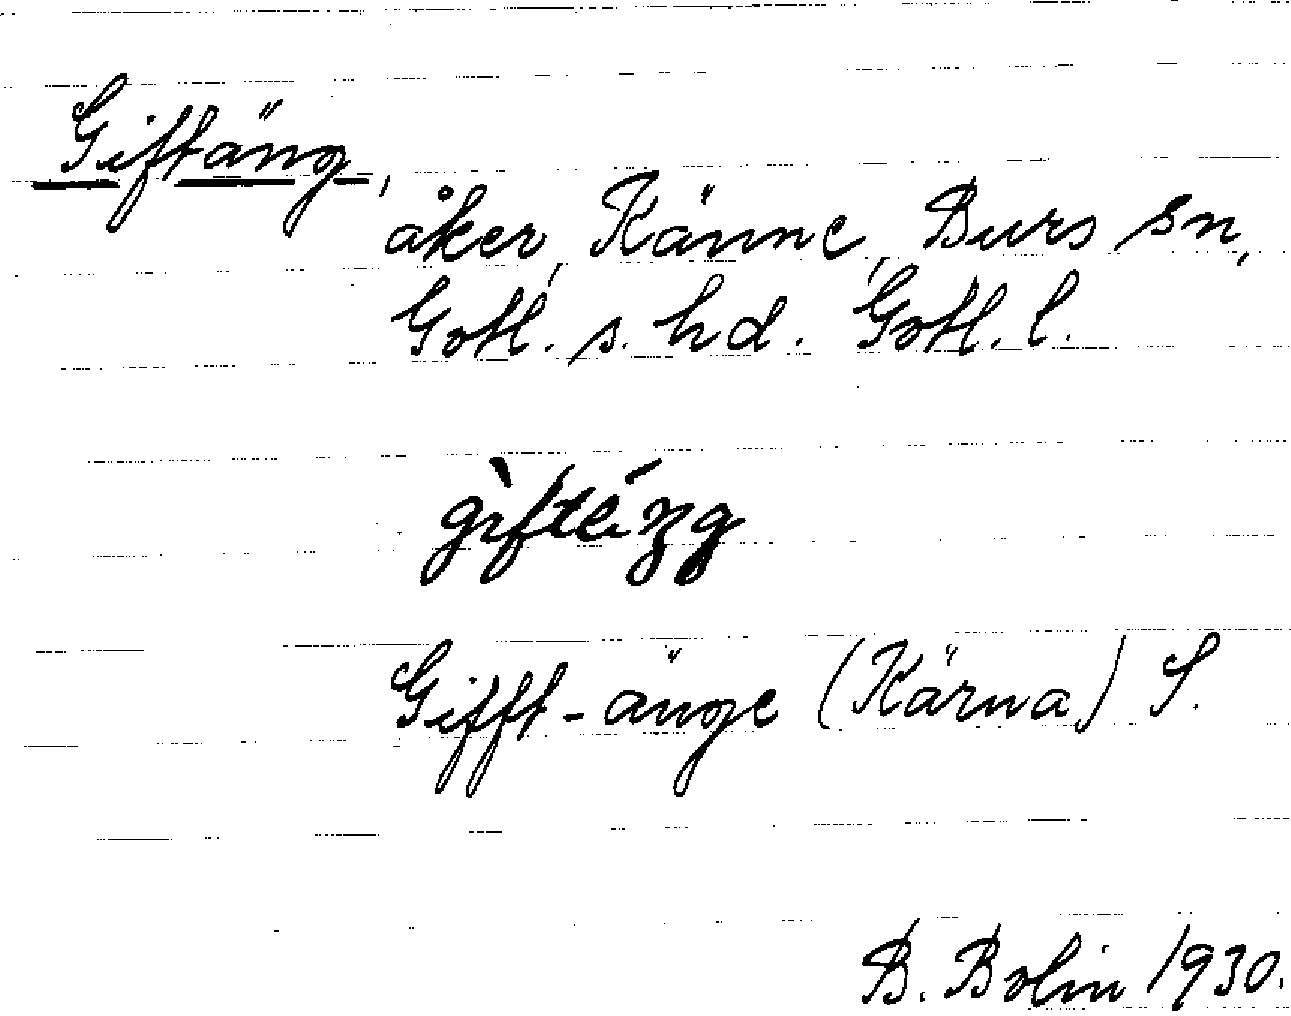 Giftäng,
åker, Känne, Burs sn,
Gotl. s. hd. Gotl. l.
gìftéŋg
Gifft-änge (Kärna) S.
B. Bolin 1930.